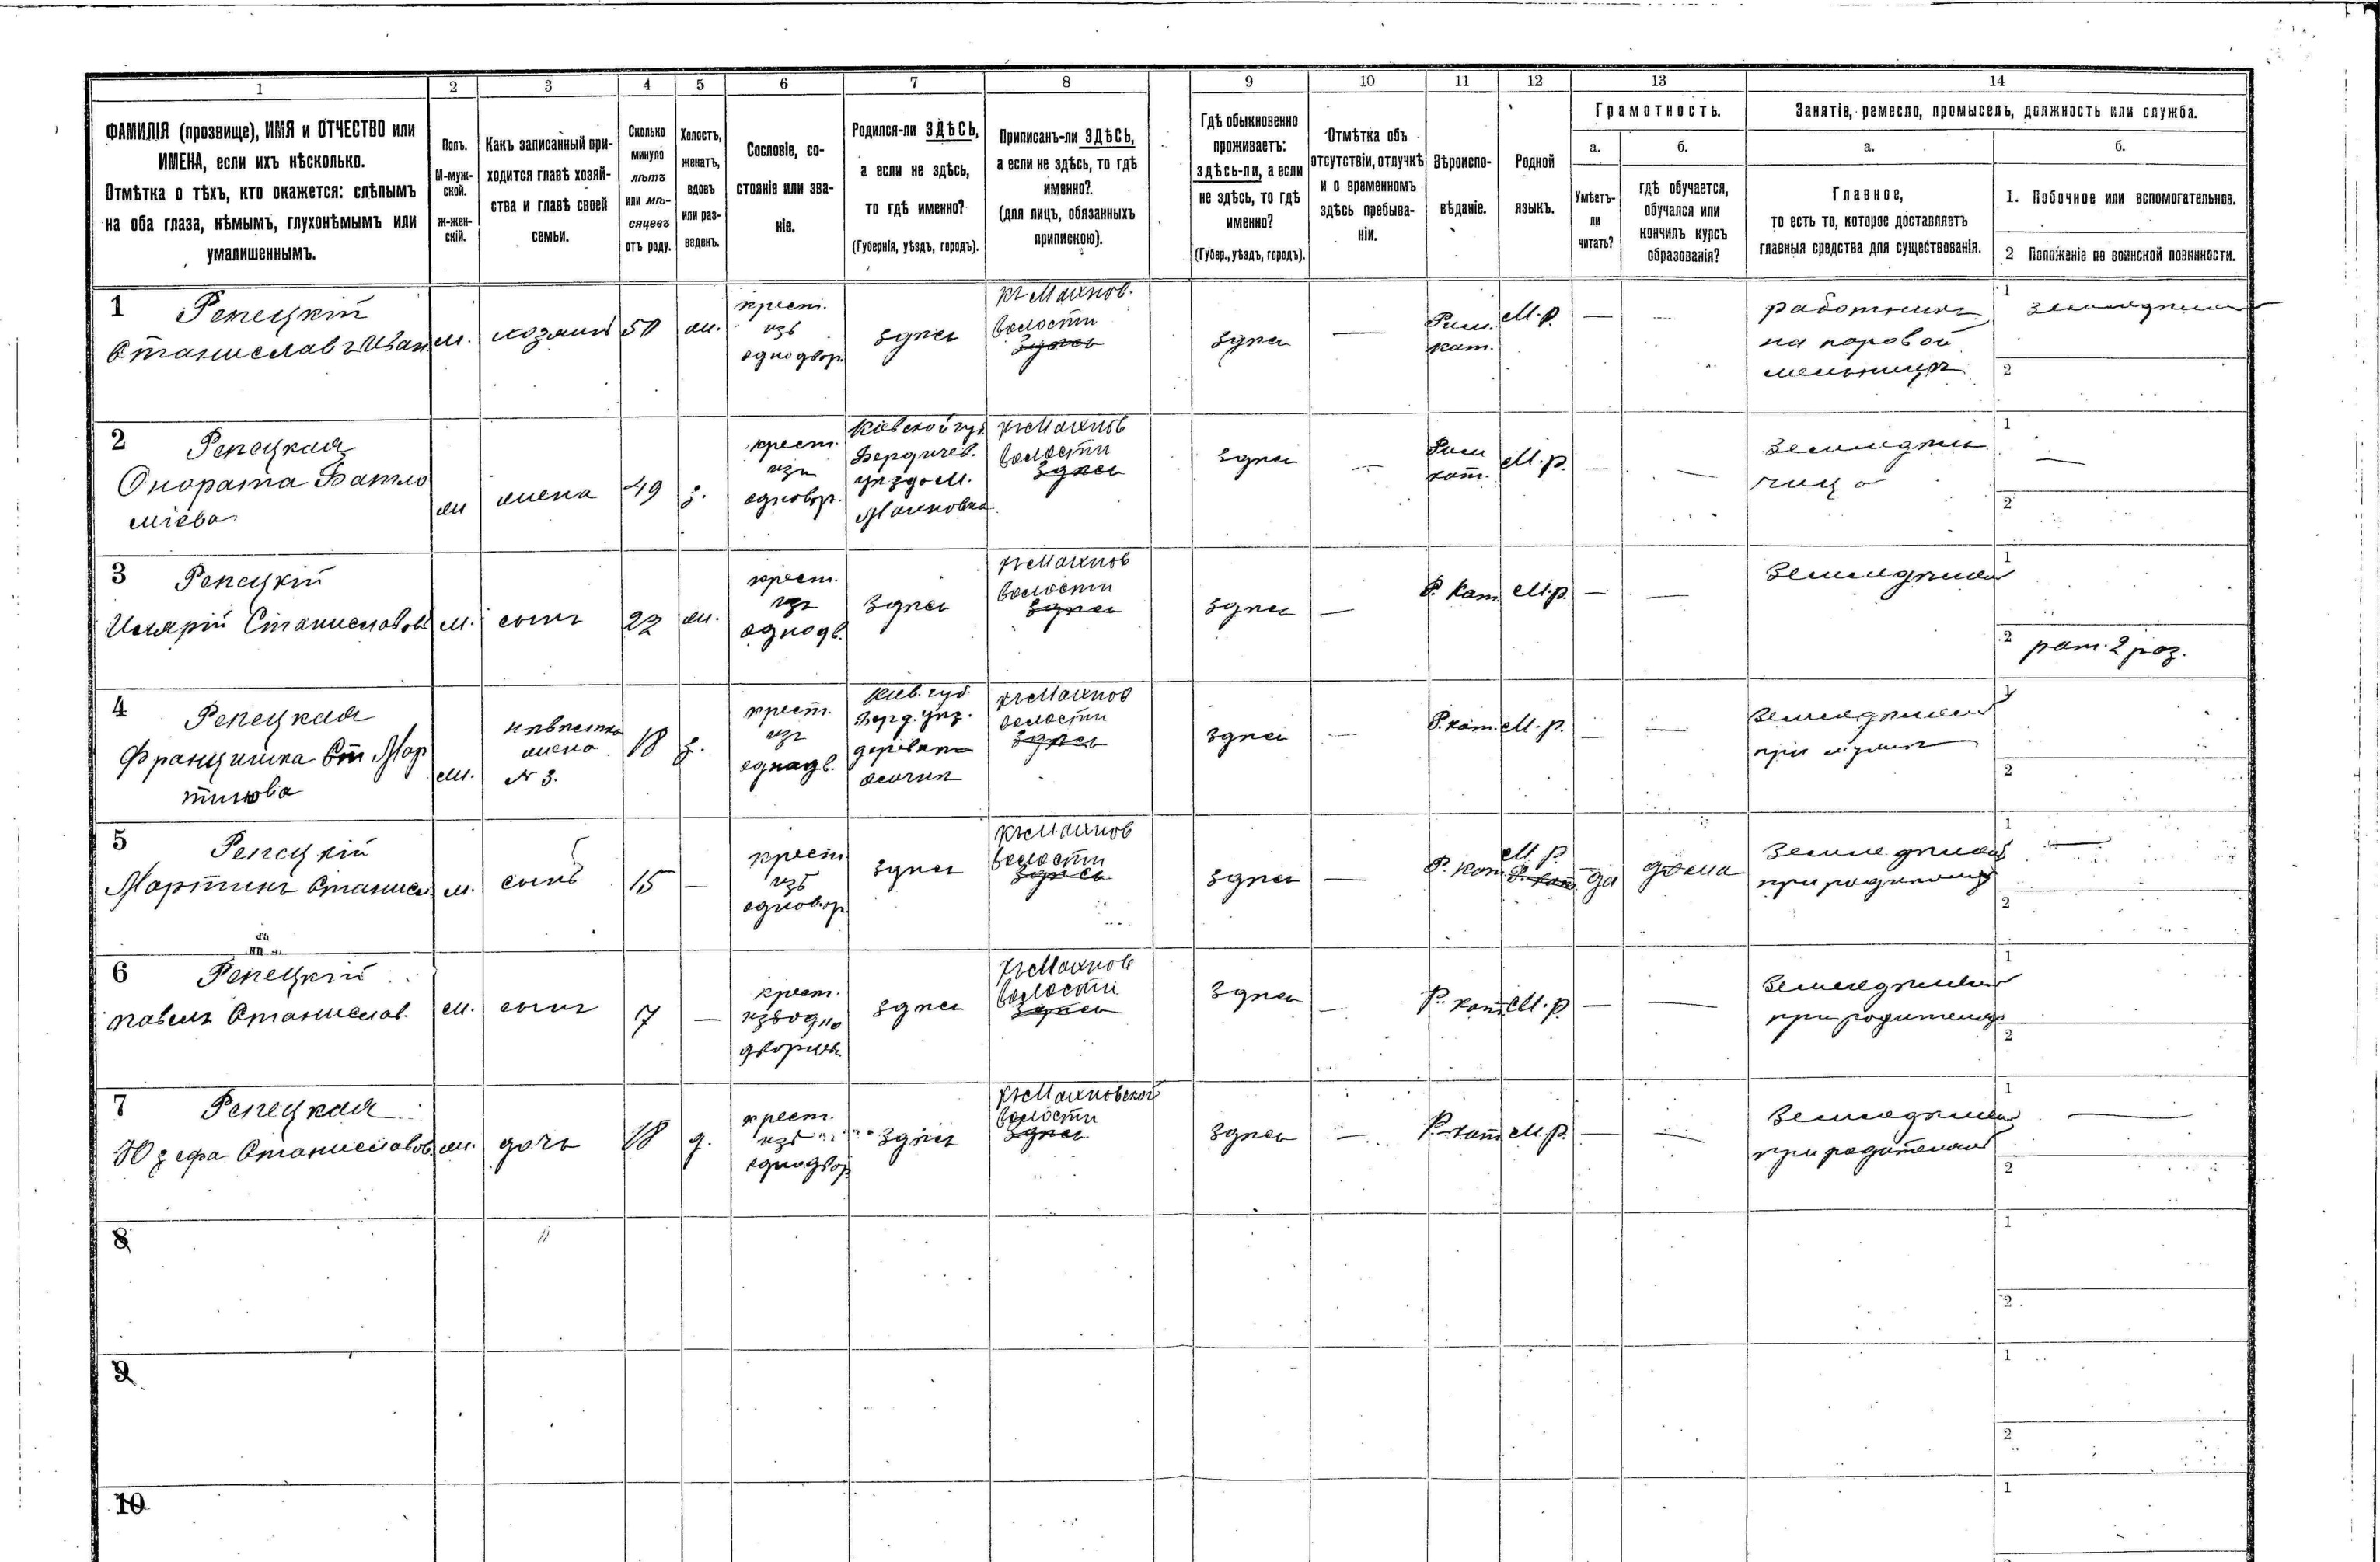 1 2 3 4 5 6 7 8 9 10 11 12 13 14
ФАМИЛІЯ (прозвище), ИМЯ и ОТЧЕСТВО или
ИМЕНА, если ихъ нѣсколько.
Отмѣтка о тѣхъ, кто окажется: слѣпымъ
на оба глаза, нѣмымъ, глухонѣмымъ или
умалишеннымъ.
Полъ.
М-муж-
ской.
Ж-жен-
скій.
Какъ записанный при-
ходится главѣ хозяй-
ства и главѣ своей
семьи.
Сколько
минуло
лѣтъ
или мѣ-
сяцевъ
отъ роду.
Холостъ,
женатъ,
вдовъ
или раз-
веденъ.
Сословіе, со-
стояніе или зва-
ніе.
Родился-ли ЗДѢСЬ,
а если не здѣсь,
то гдѣ именно?
(Губернія, уѣздъ, городъ).
Приписанъ-ли ЗДѢСЬ,
а если не здѣсь, то гдѣ
именно?
(для лицъ, обязанныхъ
припискою).
Гдѣ обыкновенно
проживаетъ:
здѣсь-ли, а если
не здѣсь, то гдѣ
именно?
(Губер., уѣздъ, городъ).
Отмѣтка объ
отсутствіи, отлучкѣ
и о временномъ
здѣсь пребыва-
ніи.
Вѣроиспо-
вѣданіе.
Родной
языкъ.
Грамотность.
а.
Умѣетъ-
ли
читать?
б.
гдѣ обучается,
обучался или
кончилъ курсъ
образованія?
Занятіе, ремесло, промыселъ, должность или служба.
а.
Главное,
то есть то, которое доставляетъ
главныя средства для существованія.
б.
1. Побочное или вспомогательное.
2 Положеніе по воинской повинности.
1 Репецкій
Станиславъ Иван
м.
хозяинъ
50
ж.
крест.
изъ
однодвор.
здѣсь
къ Махнов.
волости
здѣсь
здѣсь
—
Рим.
кат.
М.р.
—
—
работникъ
на паровой
мельницѣ
1
2
2 Репецкая
Онората Батло
міева
ж
жена
49
з.
крест.
изъ
одновор.
Кіевской губ.
Бердичев.
уѣзда м.
Махновка
къ Махнов
волости
здѣсь
здѣсь
—
Рим
кат.
М.р.
—
—
земледѣль
чица
1
—
2
3 Репецкій
Станиславов
м.
сынъ
22
ж.
крест.
изъ
однодв.
здѣсь
къ Махнов
волости
здѣсь
здѣсь
—
Р. Кат.
М.р.
—
—
1
2 рат. 2 раз.
4 Репецкая
Францишка Ст Мар
тинова
ж.
невѣстка
жена
№ 3.
18
з.
крест.
изъ
однадв.
Кіев. губ.
Берд. уѣз.
къ Махнов
волости
здѣсь
здѣсь
—
Р. кат.
М.р.
—
—
при мужѣ
1
2
5 Репецкій
Мартинъ Станисл
м.
сынъ
15
—
крест
изъ
одновор.
здѣсь
къ Махнов
волости
здѣсь
здѣсь
—
Р. кат.
М.р.
Р. кат.
да
дома
1
—
2
6 Репецкій
павелъ Станислав.
м.
сынъ
7
—
крест.
изъ одно
дворцевъ
здѣсь
къ Махнов
волости
здѣсь
здѣсь
—
Р. кат.
М.р.
—
—
1
2
7 Репецкая
Юзефа Станиславов.
ж.
дочь
18
д.
крест.
изъ
однодвор.
здѣсь
къ Махновской
волости
здѣсь
здѣсь
—
Р. кат.
М.р.
—
—
1
—
2
8
1
2
9
1
2
10
1